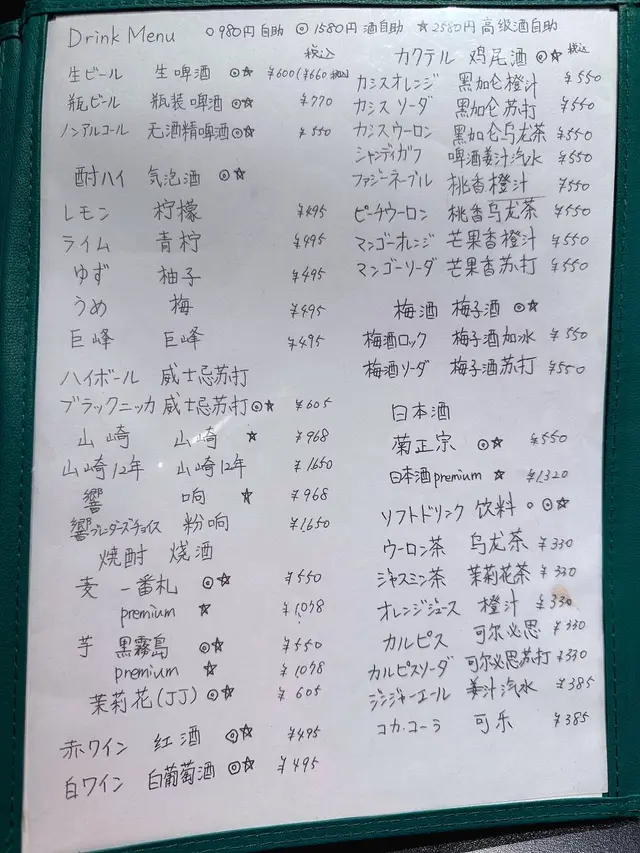 Drink Menu ○980円自助 ◎1580円酒自助 ☆2580円高级酒自助
税込
生ビール 生啤酒 ◎☆ ¥600(¥660税込)
瓶ビール 瓶装啤酒◎☆ ¥770
ノンアルコール 无酒精啤酒◎☆ ¥550
酎ハイ 気泡酒 ◎☆
レモン 柠檬 ¥495
ライム 青柠 ¥495
ゆず 柚子 ¥495
うめ 梅 ¥495
巨峰 巨峰 ¥495
ハイボール 威士忌苏打
ブラックニッカ 威士忌苏打◎☆ ¥605
山崎 山崎 ☆ ¥968
山崎12年 山崎12年 ¥1650
響 响 ☆ ¥968
響ブレンダーズチョイス 粉响 ¥1,650
焼酎 烧酒
麦 一番札 ◎☆ ¥550
premium ☆ ¥1,078
芋 黒霧島 ◎☆ ¥550
premium ☆ ¥1078
茉莉花(JJ) ◎☆ ¥605
赤ワイン 红酒 ◎☆ ¥495
白ワイン 白葡萄酒 ◎☆ ¥495
カクテル 鸡尾酒 ◎☆ 税込
カシスオレンジ 黑加仑橙汁 ¥550
カシスソーダ 黑加仑苏打 ¥550
カシスウーロン 黑加仑乌龙茶 ¥550
シャンディガフ 啤酒姜汁汽水 ¥550
ファジーネーブル 桃香橙汁 ¥550
ピーチウーロン 桃香乌龙茶 ¥550
マンゴーオレンジ 芒果香橙汁 ¥550
マンゴーソーダ 芒果香苏打 ¥550
梅酒 梅子酒 ◎☆
梅酒ロック 梅子酒加冰 ¥550
梅酒ソーダ 梅子酒苏打 ¥550
日本酒
菊正宗 ◎☆ ¥550
日本酒premium ☆ ¥1,320
ソフトドリンク 饮料 ○◎☆
ウーロン茶 乌龙茶 ¥330
ジャスミン茶 茉莉花茶 ¥330
オレンジジュース 橙汁 ¥330
カルピス 可尔必思 ¥330
カルピスソーダ 可尔必思苏打 ¥330
ジンジャーエール 姜汁汽水 ¥385
コカ・コーラ 可乐 ¥385